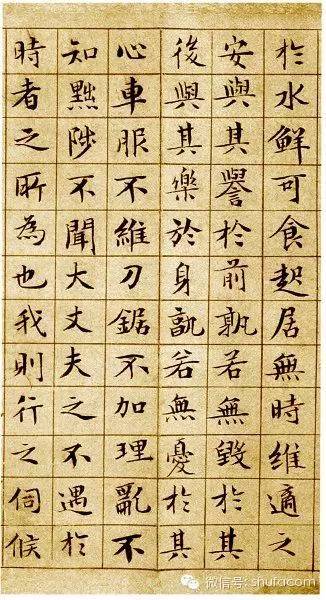 於水鮮可食起居無時維適之
安與其譽於前孰若無毀於其
後與其樂於身孰若無憂於其
心車服不維刀鋸不加理亂不
知黜陟不聞大丈夫之不遇於
時者之所為也我則行之伺候
微信号: shufacom